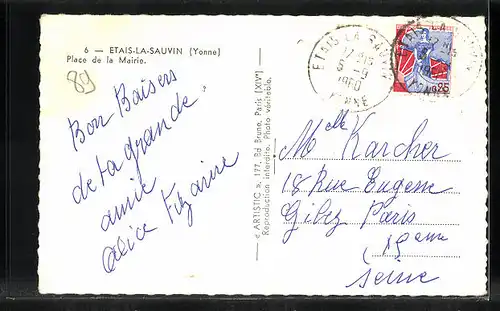 6 — ETAIS-LA-SAUVIN (Yonne)
Place de la Mairie.
89
Bon Baisers
de ta grande
amie
Alice
« ARTISTIC », 177, Bd Brune, Paris (XIVe)
Reproduction interdite. Photo véritable.
ETAIS-LA-SAUVIN
5-9
1960
YONNE
0,25
Melle Karcher
18 Rue Eugene
Gibez Paris
15eme
Seine